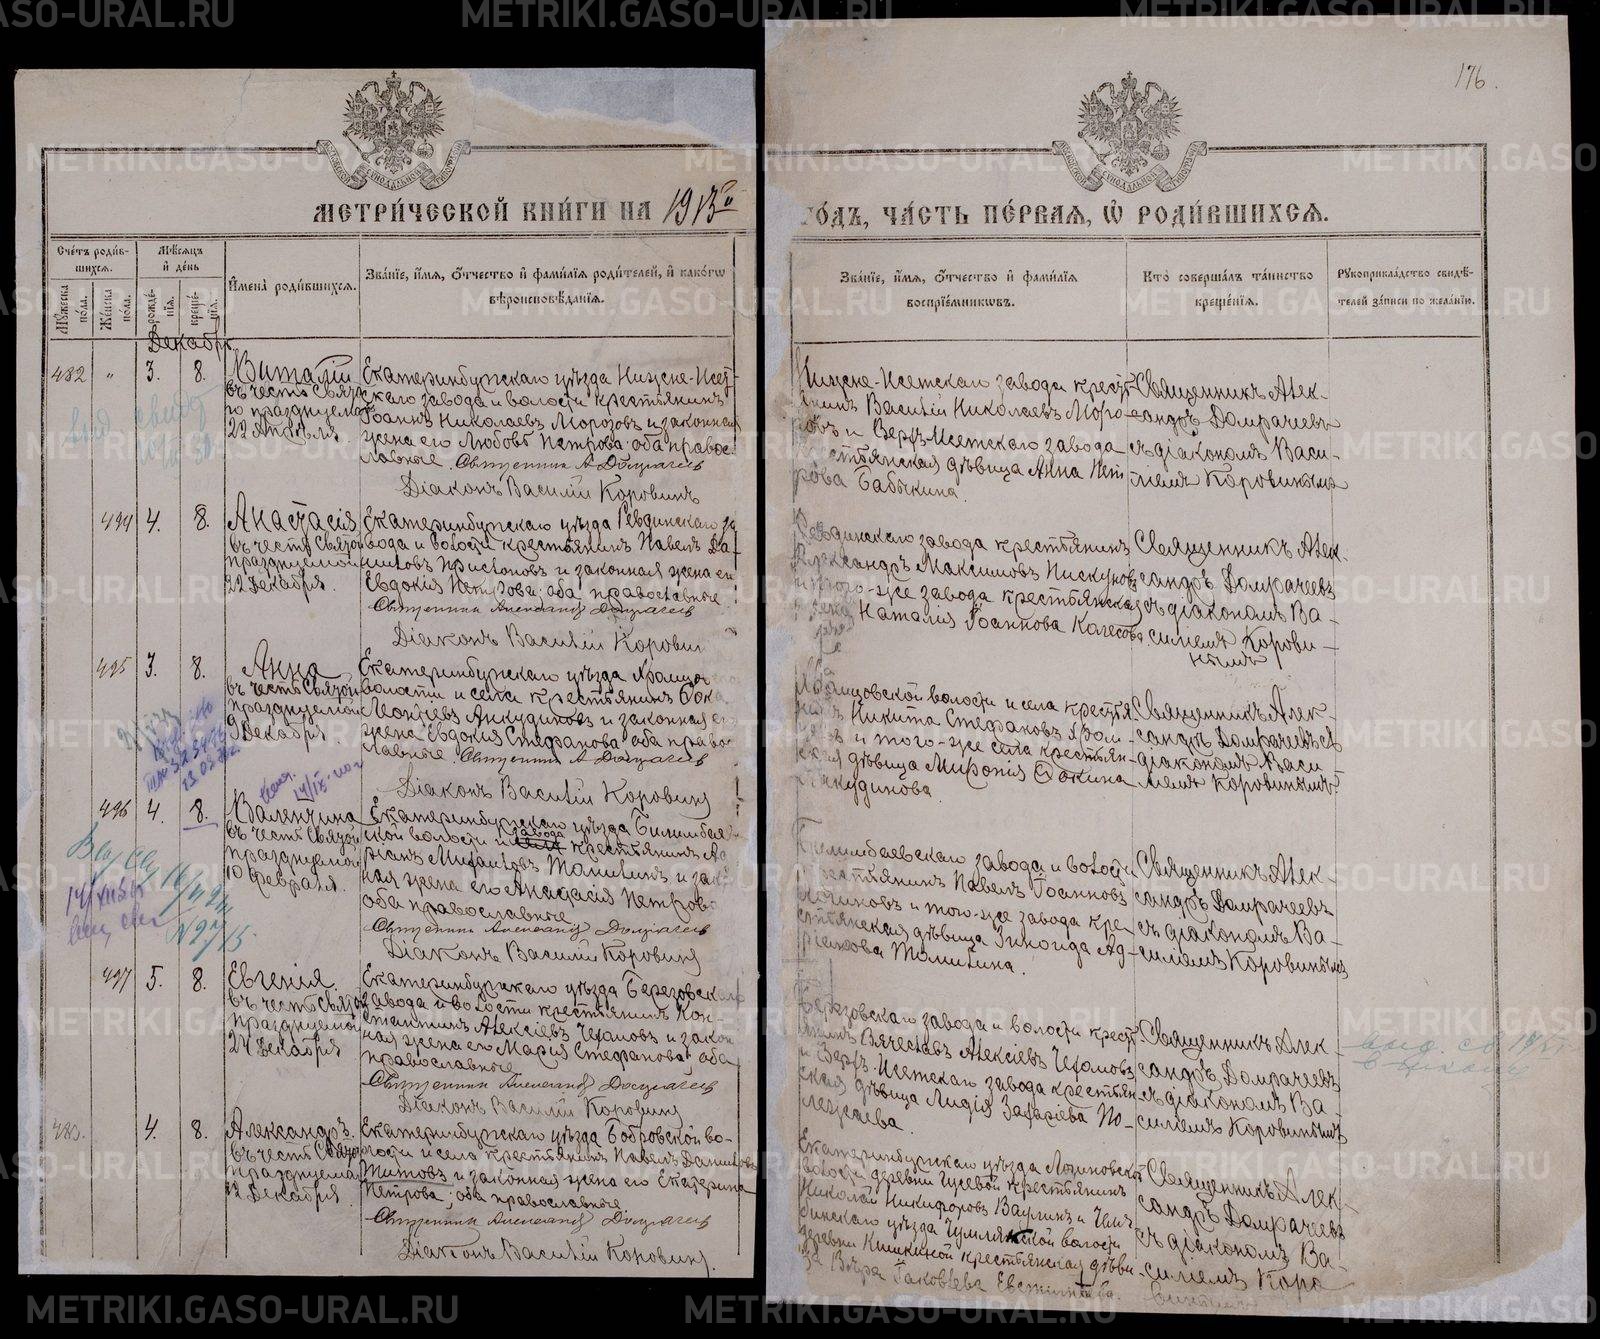 176.
МЕТРИЧЕСКОЙ КНИГИ НА 1913
ГОДЪ, ЧАСТЬ ПЕРВАЯ, Ѡ РОДИВШИХСЯ.
Счетъ родив-
шихся.
Мужеска пола.
Женска пола.
Мѣсяцъ
и день
рожде-
нія.
креще-
нія.
Имена родившихся.
Званіе, имя, отчество и фамилія родителей, и какогѡ
вѣроисповѣданія.
Званіе, имя, отчество и фамилія
воспріемникѡвъ.
Кто совершалъ таинство
крещенія.
Рукоприкладство свидѣ-
телей записи по желанію.
Декабрь.
482 " 3. 8.
Виталій
въ честь Свята-
го празднуемаго
22 Апрѣля.
Екатеринбургскаго уѣзда Нижне-Исет-
скаго завода и волости крестьянинъ
Іоаннъ Николаевъ Морозовъ и законная
жена его Любовь Петрова, оба право-
славные. Священникъ А. Домрачеевъ
Діаконъ Василій Коровинъ
Нижне-Исетскаго завода крестья-
нинъ Василій Николаевъ Моро-
зовъ и Верхъ-Исетскаго завода
крестьянская дѣвица Анна Пет-
рова Бабыкина.
Священникъ Алек-
сандръ Домрачеевъ
съ діакономъ Васи-
ліемъ Коровинымъ
494 4. 8.
Анастасія
въ честь Святой
празднуемой
22 Декабря.
Екатеринбургскаго уѣзда Ревдинскаго за-
вода и волости крестьянинъ Павелъ Да-
ниловъ и законная жена его
Евдокія Петрова, оба православные.
Священникъ Александръ Домрачеевъ
Діаконъ Василій Коровинъ
Ревдинскаго завода крестьянинъ
Александръ Максимовъ Пискуновъ
и того-же завода крестьянская
Наталія Іоаннова
Священникъ Алек-
сандръ Домрачеевъ
съ діакономъ Ва-
силіемъ Корови-
нымъ
495 3. 8.
Анна
въ честь Святой
празднуемой
9 Декабря.
Екатеринбургскаго уѣзда
волости и села крестьянинъ Ѳока
Леонтіевъ Анкудиновъ и законная его
жена Евдокія Стефанова, оба право-
славные. Священникъ А. Домрачеевъ
Діаконъ Василій Коровинъ
волости и села крестья-
нинъ Никита Стефановъ
и того-же села крестьян-
ская дѣвица Ѳокина
Анкудинова.
Священникъ Алек-
сандръ Домрачеевъ съ
діакономъ Васи-
ліемъ Коровинымъ
496 4. 8.
Валентина
въ честь Святой
празднуемой
10 Февраля.
Екатеринбургскаго уѣзда Билимбаев-
ской волости и завода крестьянинъ Ад-
ріанъ Михаиловъ Томилинъ и закон-
ная жена его Анастасія Петрова
оба православные.
Священникъ Александръ Домрачеевъ
Діаконъ Василій Коровинъ
Билимбаевскаго завода и волости
крестьянинъ Павелъ Іоанновъ
и того-же завода кре-
стьянская дѣвица Зинаида Ад-
ріанова Томилина.
Священникъ Алек-
сандръ Домрачеевъ
съ діакономъ Ва-
силіемъ Коровинымъ
497 5. 8.
Евгенія.
въ честь Святой
празднуемой
24 Декабря
Екатеринбургскаго уѣзда Березовскаго
завода и волости крестьянинъ Кон-
стантинъ Алексіевъ и закон-
ная жена его Марія Стефанова, оба
православные
Священникъ Александръ Домрачеевъ
Діаконъ Василій Коровинъ
Березовскаго завода и волости крестья-
нинъ Вячеславъ Алексіевъ
и Верхъ-Исетскаго завода крестьян-
ская дѣвица Лидія Захаріева По-
лежаева.
Священникъ Алек-
сандръ Домрачеевъ
съ діакономъ Ва-
силіемъ Коровинымъ
483. 4. 8.
Александръ.
въ честь Святаго
празднуемаго
12 Декабря.
Екатеринбургскаго уѣзда Бобровской во-
лости и села крестьянинъ Павелъ Даниловъ
Титовъ и законная жена его Екатерина
Петрова, оба православные
Священникъ Александръ Домрачеевъ
Діаконъ Василій Коровинъ.
Екатеринбургскаго уѣзда Логиновской
волости деревни Гусевой крестьянинъ
Николай Никифоровъ Ваулинъ и Челя-
бинскаго уѣзда Чумлякской волости
деревни крестьянская дѣви-
ца Вѣра Іаковлева
Священникъ Алек-
сандръ Домрачеевъ
съ діакономъ Ва-
силіемъ Коро-
винымъ